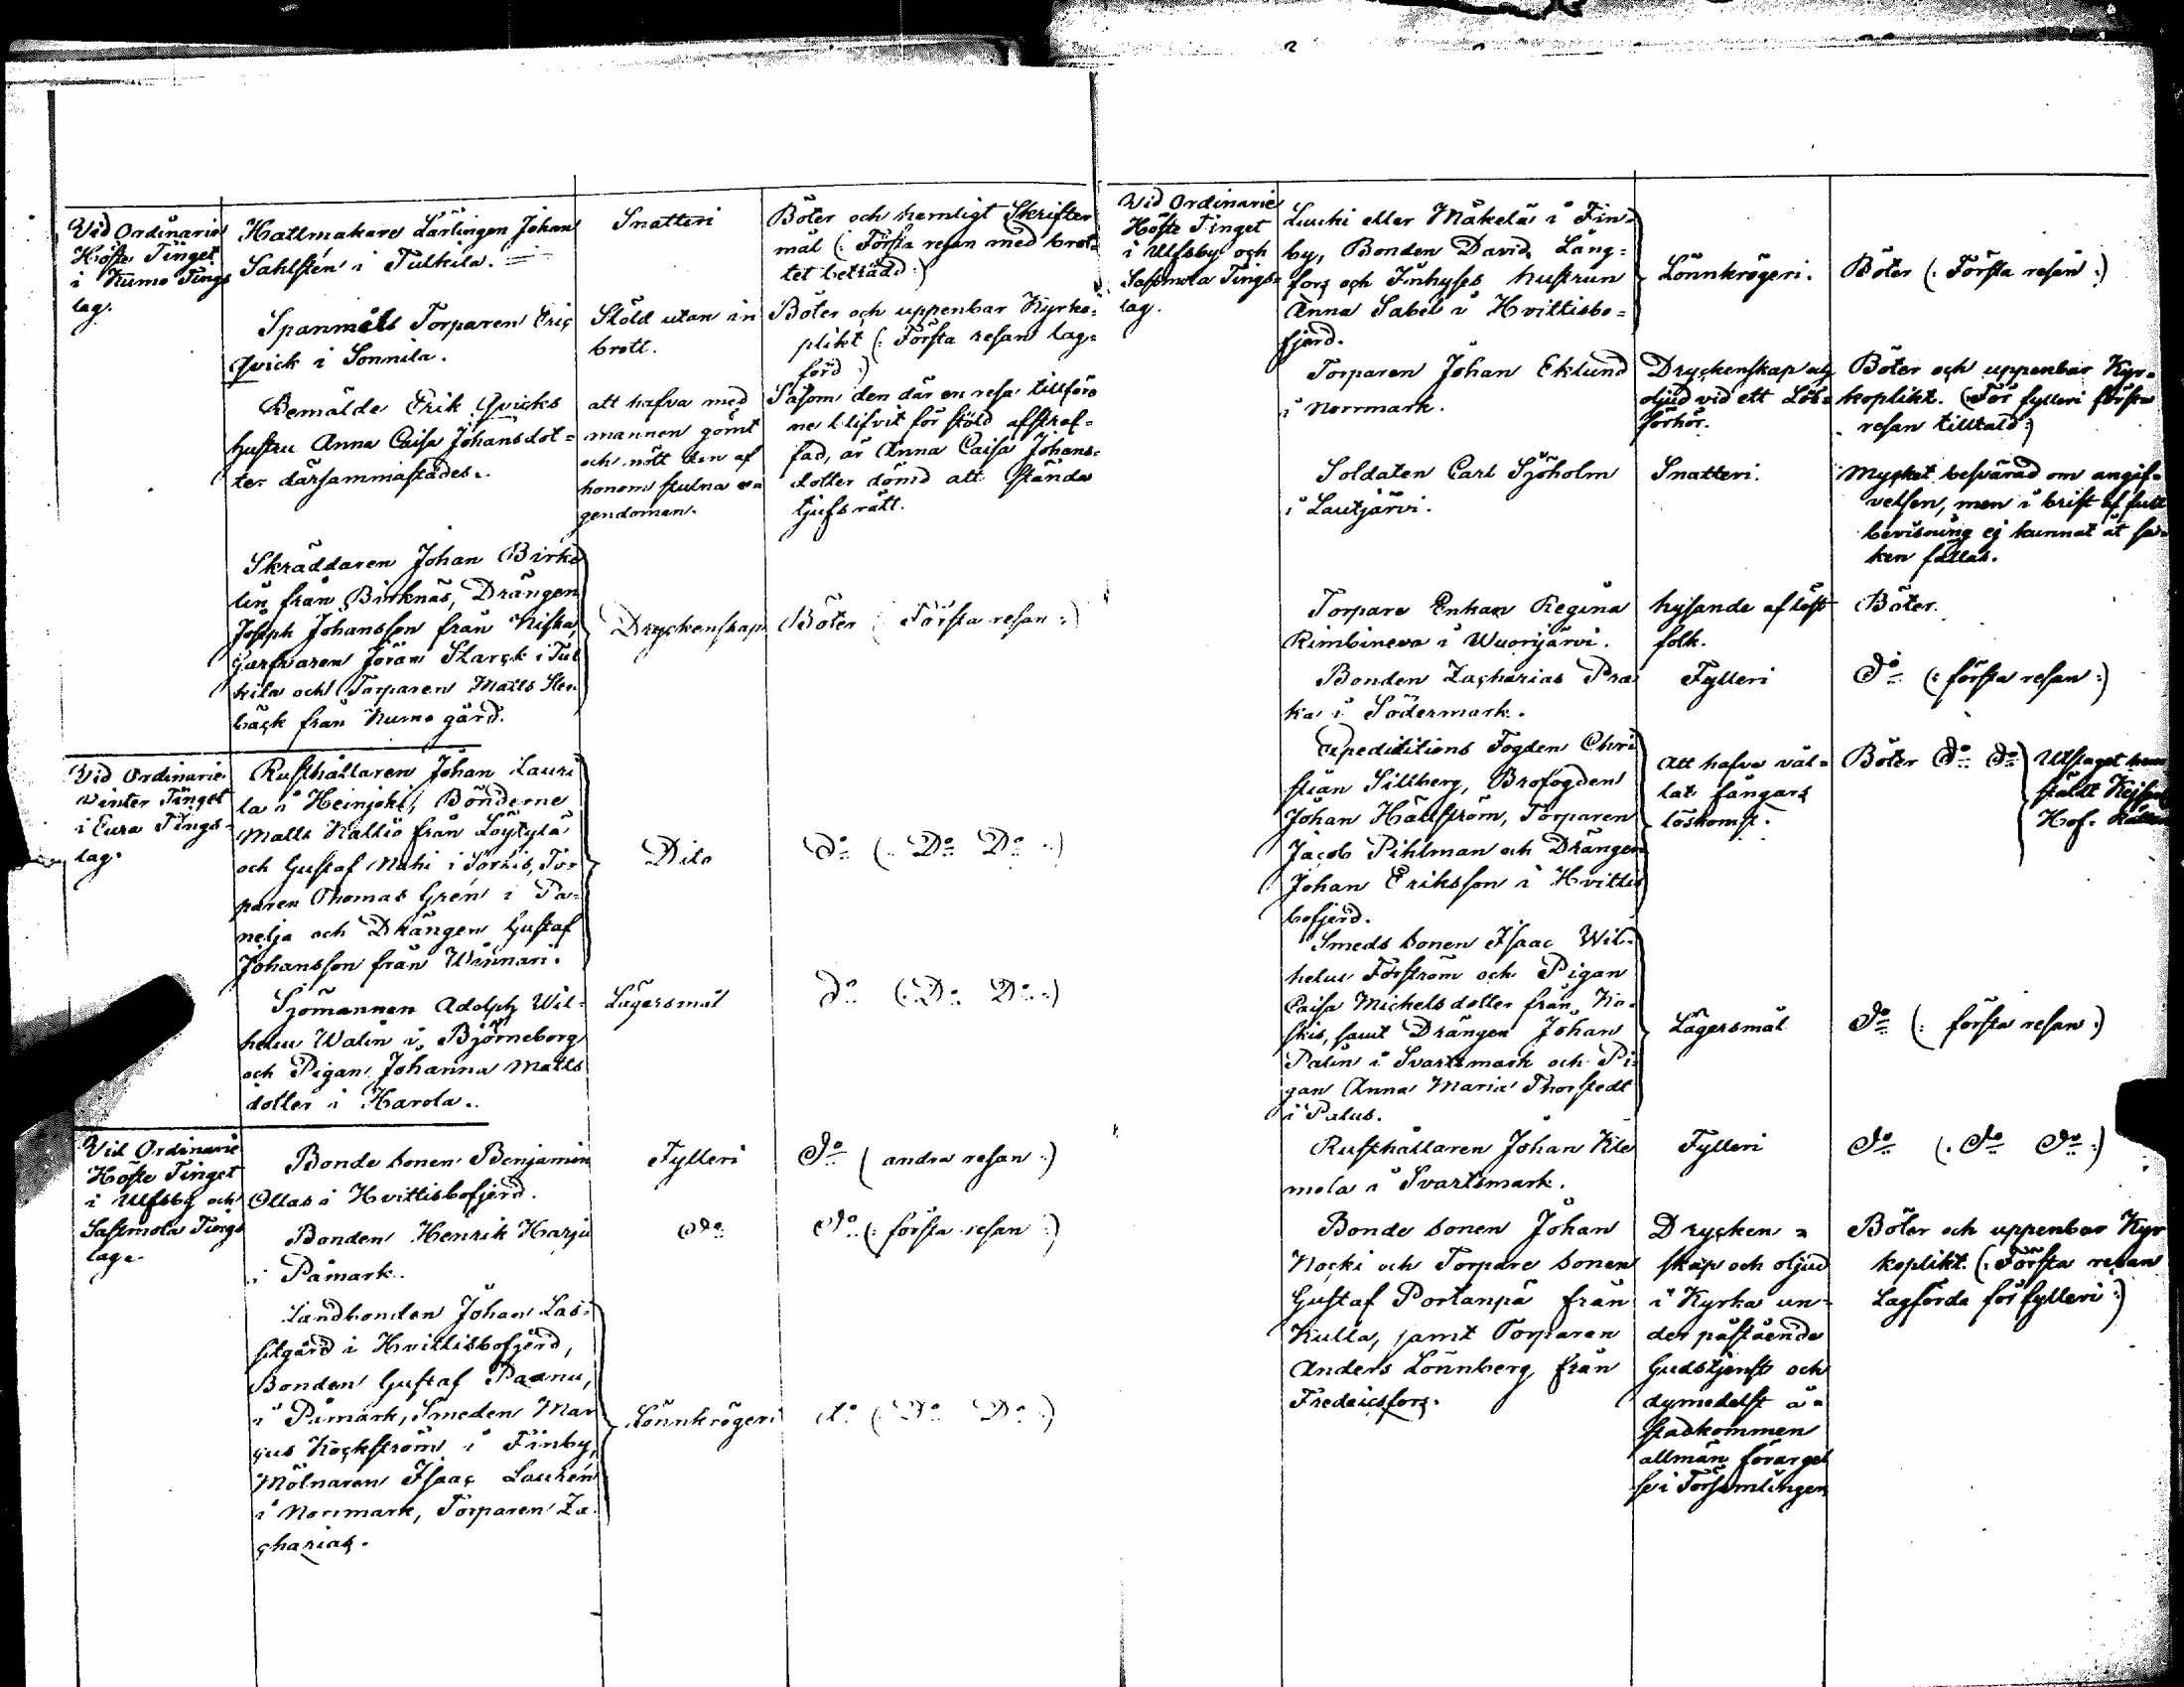 Vid Ordinarie
Höste Tinget
i Kumo Tings
lag.
Hattmakare Lärlingen Johan
Sahlstén i Tulkila.
Snatteri
Böter och hemligt Skrifter
mål (: Första resan med brot-
tet beträdd :)
Spanmåls Torparen Eric
Qvick i Sonnila.
Stöld utan in
brott.
Böter och uppenbar Kyrko-
plikt (: Första resan lag-
förd :)
Bemälde Erik Qvicks
hustru Anna Caisa Johansdot-
ter därsammastädes.
att hafva med
mannen gömt
och nött den af
honom stulna e
gendomen.
Såsom den där en resa tillföre
ne blifvit för stöld afstraf-
fad, är Anna Caisa Johans-
dotter dömd att stånda
tjufsrätt.
Skräddaren Johan Birke
lin från Birknäs, Drängen
Joseph Johansson från Niska,
Garfvaren Jöran Starck i Tul
kila och Torparen Matts Sten
bäck från Kumo gård.
Dryckenskap
Böter (: Första resan :)
Vid Ordinarie
Winter Tinget
i Eura Tings-
lag.
Rusthållaren Johan Lauri
la i Heinjoki, Bönderne
Matts Kallio från Löytylä
och Gustaf Mahi i Sorkis, Tor
paren Thomas Grén i Pa-
nelja och Drängen Gustaf
Johansson från Winnari.
Dito
Do (: Do Do :)
Sjömannen Adolph Wil-
helm Walin i Björneborg
och Pigan Johanna Matts
dotter i Harola.
Lägersmål
Do (: Do Do :)
Vid Ordinarie
Höste Tinget
i Ulfsby och
Sastmola Tings
lag.
Bonde sonen Benjamin
Ollas i Hvittisbofjerd.
Fylleri
Do (: andra resan :)
Bonden Henrik Harju
i Påmark.
Do
Do (: första resan :)
Landbonden Johan Las-
silgård i Hvittisbofjerd,
Bonden Gustaf Paanu,
i Påmark, Smeden Mar
cus Kockström i Finby,
Mölnaren Isaac Laurén
i Norrmark, Torparen Za
charias.
Lönnkrögeri
Do (: Do Do :)
Vid Ordinarie
Höste Tinget
i Ulfsby och
Sastmola Tings-
lag.
Luuki eller Mäkelä i Fin-
by, Bonden David Lång-
fors och Inhyses hustrun
Anna Sabel i Hvittisbo-
fjerd.
Lönnkrögeri.
Böter (: Första resan :)
Torparen Johan Eklund
i Norrmark.
Dryckenskap och
oljud vid ett Läs-
förhör.
Böter och uppenbar Kyr-
koplikt. (: För fylleri första
resan tilltald :)
Soldaten Carl Sjöholm
i Lautjärvi.
Snatteri.
Mycket besvärad om angif-
velsen, men i brist af full
bevisning ej kunnat åt sa-
ken fällas.
Torpare Enkan Regina
Rimbineva i Wuorijärvi.
hysande af löst
folk.
Böter.
Bonden Zacharias Pra
ka i Södermark.
Fylleri
Do (: första resan :)
Expeditions Fogden Chri
stian Sillberg, Brofogden
Johan Hällström, Torparen
Jacob Pihlman och Drängen
Johan Eriksson i Hvittis
bofjerd.
Att hafva vål-
lat fångars
löskomst.
Böter Do Do
Utslaget hem
stäldt Kejserl
Hof-Rätten
Smeds sonen Isaac Wil-
helm Forström och Pigan
Caisa Michelsdotter från Ko-
skis, samt Drängen Johan
Palin i Svartsmark och Pi-
gan Anna Maria Thorstedt
i Palus.
Lägersmål
Do (: första resan :)
Rusthållaren Johan Kle
mola i Svartsmark.
Fylleri
Do (: Do Do :)
Bonde sonen Johan
Nocki och Torpare sonen
Gustaf Portanpä från
Kulla, jamt Torparen
Anders Lönnberg från
Fredricsfors.
Drycken-
skap och oljud
i Kyrka un-
der påstående
Gudstjenst och
dymedelst å-
stadkommen
allmän förargel
se i Församlingen
Böter och uppenbar Kyr
koplikt. (: Första resan
Lagförda för fylleri :)